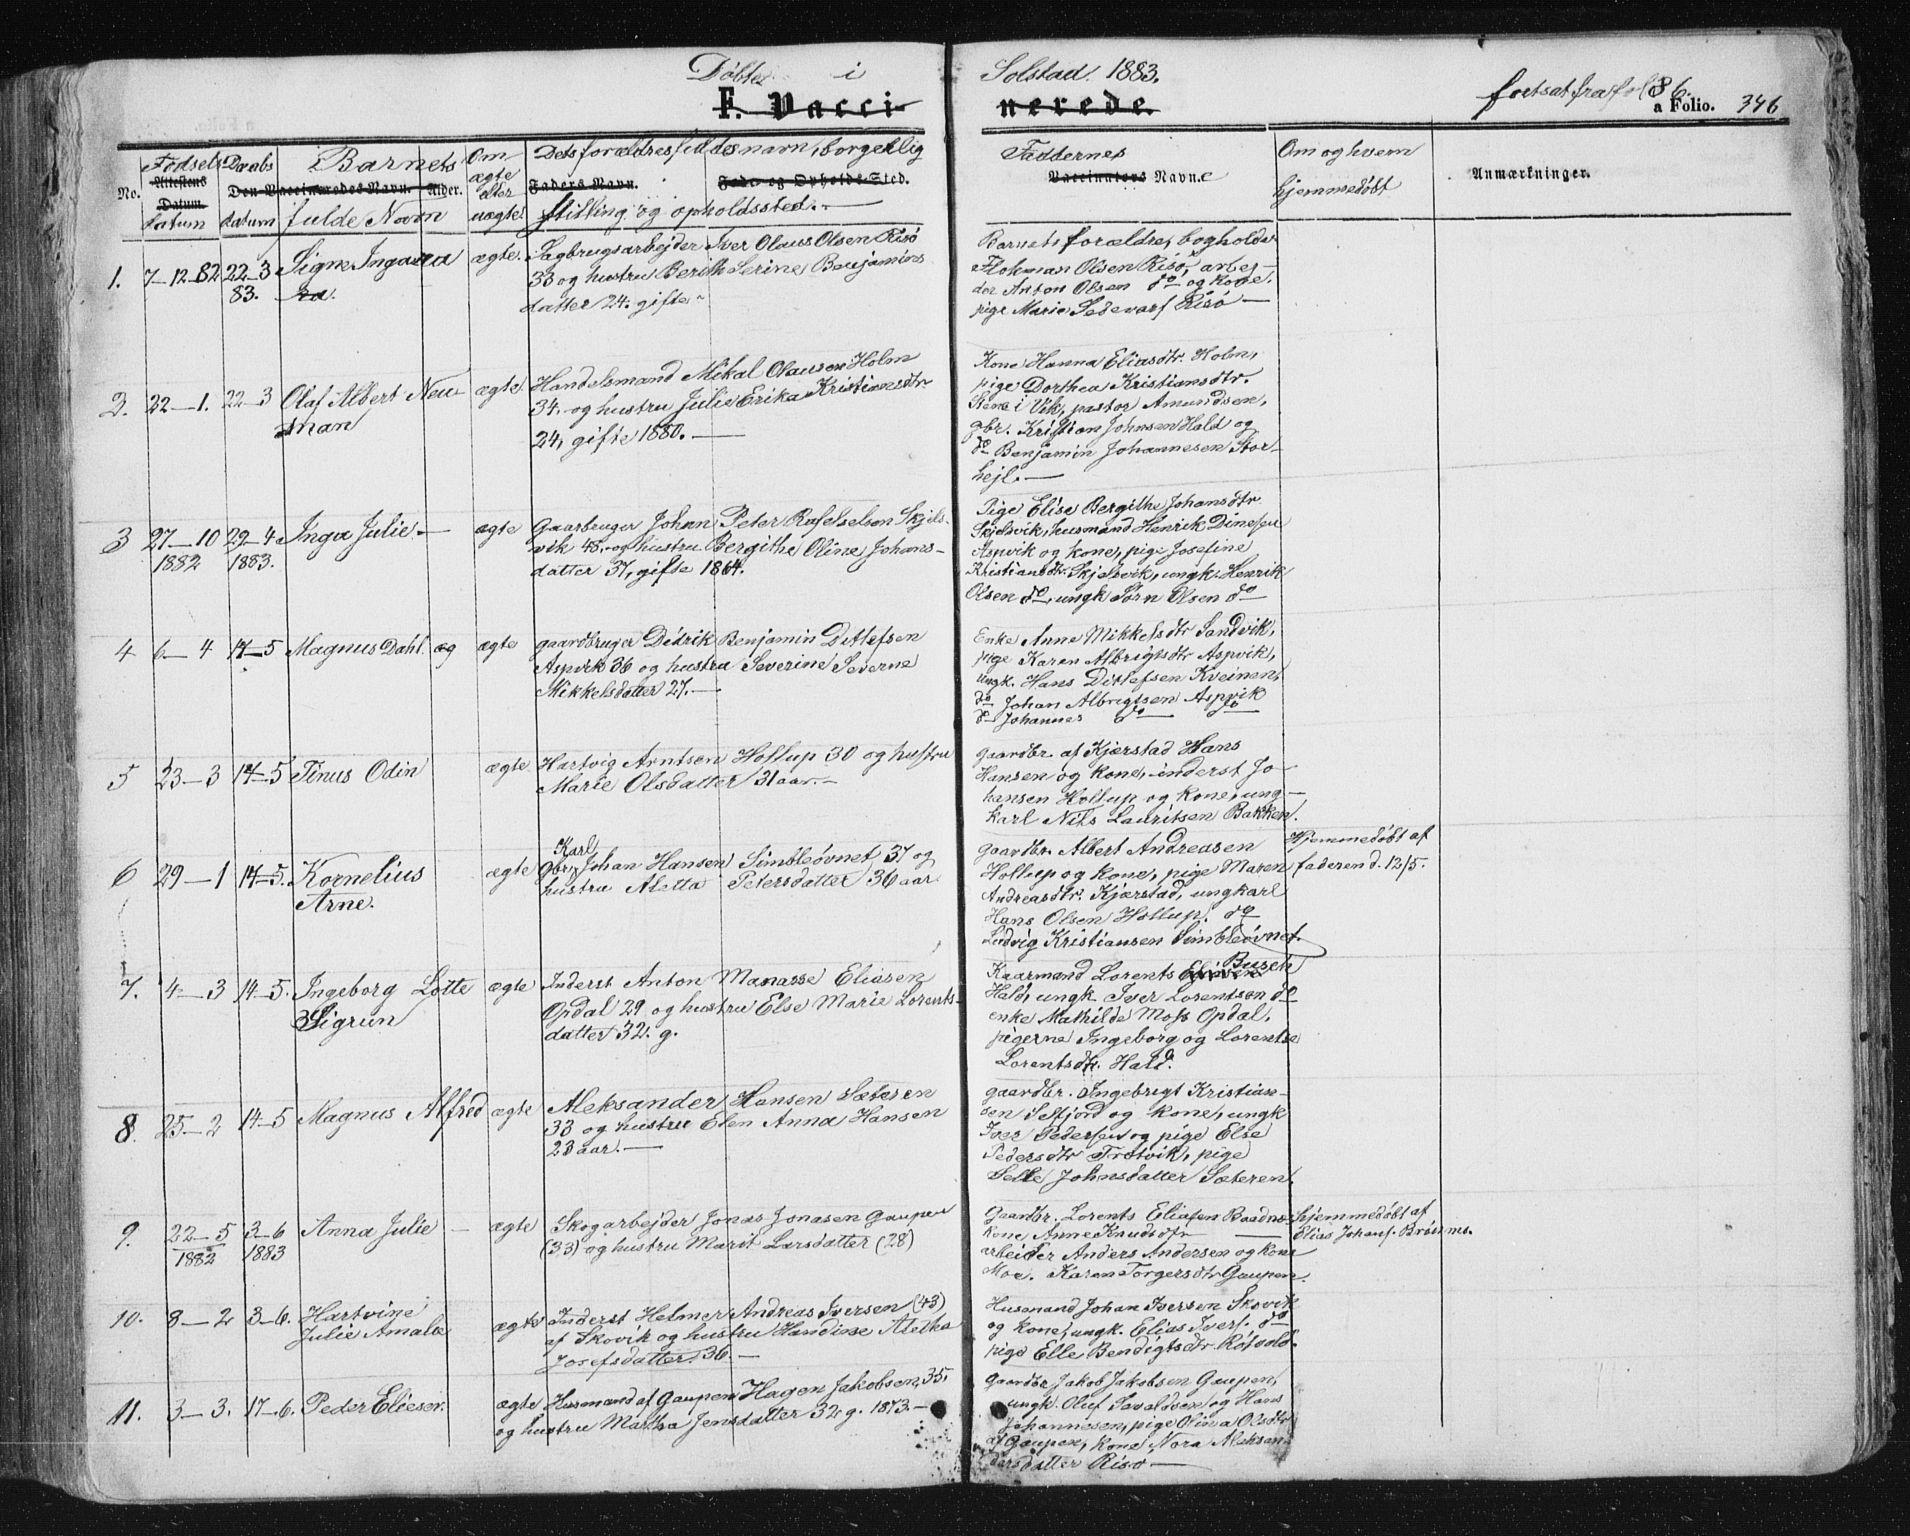 Døbte i Solstad 1883.
F. Vaccinerede
fortsat fra fol 86.
a Folio. 346
No.
Fødsels Daabs Barnets Om Dets forældres fulde navn, borgerlig Faddernes Om og hvem
Attestens Datum. Den Vaccineredes Navn. Alder. ægte eller Faders Navn. Føde- og Opholds-Sted. Vaccinators Navne hjemmedøbt Anmærkninger.
datum datum fulde Navn uægte stilling og opholdssted.
1. 7-12-82 22-3 83. Signe Ingara ægte.
Sagbrugsarbejder Iver Olaus Olsen Risø
33 og hustru Berith Serine Benjamins
datter 24. gifte
Barnets forældre, bogholder
Flokman Olsen Risø, arbej-
der Anton Olsen do og kone,
pige Marie Sedevarf Risø
2. 22-1. 22-3 Olaf Albert Neu
man
ægte
Handelsmand Mikal Olausen Holm
34. og hustru Julie Erika Kristiansdtr
24, gifte 1880.
Kone Hanna Eliasdtr. Holm,
pige Dorthea Kristiansdtr.
Stene i Vik, pastor Amundsen,
gbr. Kristian Johnsen Hald og
do Benjamin Johannesen Stor-
hejl.
3 27-10 1882 29-4 1883. Inga Julie ægte
Gaarbruger Johan Peter Rafelselsen Skjels-
vik 45. og hustru Bergithe Oline Johans-
datter 37, gifte 1864.
Pige Elise Bergithe Johansdtr
Skjelsvik, husmand Henrik Dinesen
Aspvik og kone, pige Josefine
Kristiansdtr. Skjelsvik, ungk. Henrik
Olsen do, ungk Sørn Olsen do
4 6-4 14-5 Magnus Dahl. æg ægte
gaardbruger Didrik Benjamin Ditlefsen
Aspvik 36 og hustru Severine Severne
Mikkelsdatter 27.
Enke Anne Mikkelsdtr Sandvik,
pige Karen Albrigtsdtr Aspvik,
ungk. Hans Ditlefsen Kveinen,
do Johan Albrigtsen Aspvik
do Johannes do do
5 23-3 14-5 Tinus Odin ægte
Hartvig Arntsen Hollup 30 og hustru
Marie Olsdatter 31 aar.
gaardbr. af Kjærstad Hans
Hansen og kone, inderst Jo-
hansen Hollup og kone, ung-
karl Nils Lauritsen Bakken.
6 29-1 14-5. Kornelius
Arne.
ægte
Karl
Gbr. Johan Hansen Simbleøvnet 37 og
hustru Aletta Petersdatter 36 aar
gaardbr. Albert Andreasen
Hollup og kone, pige Maren
Andreasdtr. Kjærstad, ungkarl
Hans Olsen Hollup. do
Ludvig Kristiansen Simbleøvnet.
Hjemmedøbt af
faderen d. 13/5.
7. 4-3 14-5. Ingeborg Lotte
Sigrun
ægte
Inderst Anton Manasse Eliasen
Opdal 29 og hustru Else Marie Lorents-
datter 32. g.
Kaarmand Lorents Busch
Hald, ungk Iver Lorentsen do
enke Mathilde Moss Opdal,
pigerne Ingeborg og Lorentse
Lorentsdtr. Hald.
8. 25-2 14-5 Magnus Alfred ægte
Aleksander Hansen Sæteren
33 og hustru Elen Anna Hansen
23 aar.
gaardbr. Ingebrigt Kristian-
sen Selfjord og kone, ungk
Iver Pedersen og pige Else
Pedersdtr Trötvik, pige
Selle Johnsdatter Sæteren.
9. 22-5 1882 3-6 1883 Anna Julie ægte
Skogarbejder Jonas Jonasen Gaupen
(33) og hustru Marit Larsdatter (28)
Gaardbr. Lorents Eliasen Baadns
kone Anne Knudsdtr
arbeider Anders Andersen og kone
Moe. Karen Torgersdtr Gaupen.
hjemmedøbt af
Elias Johans. Brösnes.
10. 8-2 3-6. Hartvine
Julie Amale
ægte
Inderst Helmer Andreas Iversen (43)
af Skovik og hustru Handine Aletha
Josefsdatter. 36.
Husmand Johan Iversen Skovik
og kone, ungk. Elias Ivers. do
pige Elle Bendigtsdtr. Rötvold.
11. 3-3. 17-6. Peder Elieser. ægte
Husmand af Gaupen Hagen Jakobsen, 35,
og hustru Martha Jensdatter 32 g. 1873.
Gaardbr Jakob Jakobsen Gaupen,
ungk. Oluf Savaldsen og Hans
Johannesen, pige Olina Olsdtr
af Gaupen, kone Nora Aleksan-
dersdatter Risø